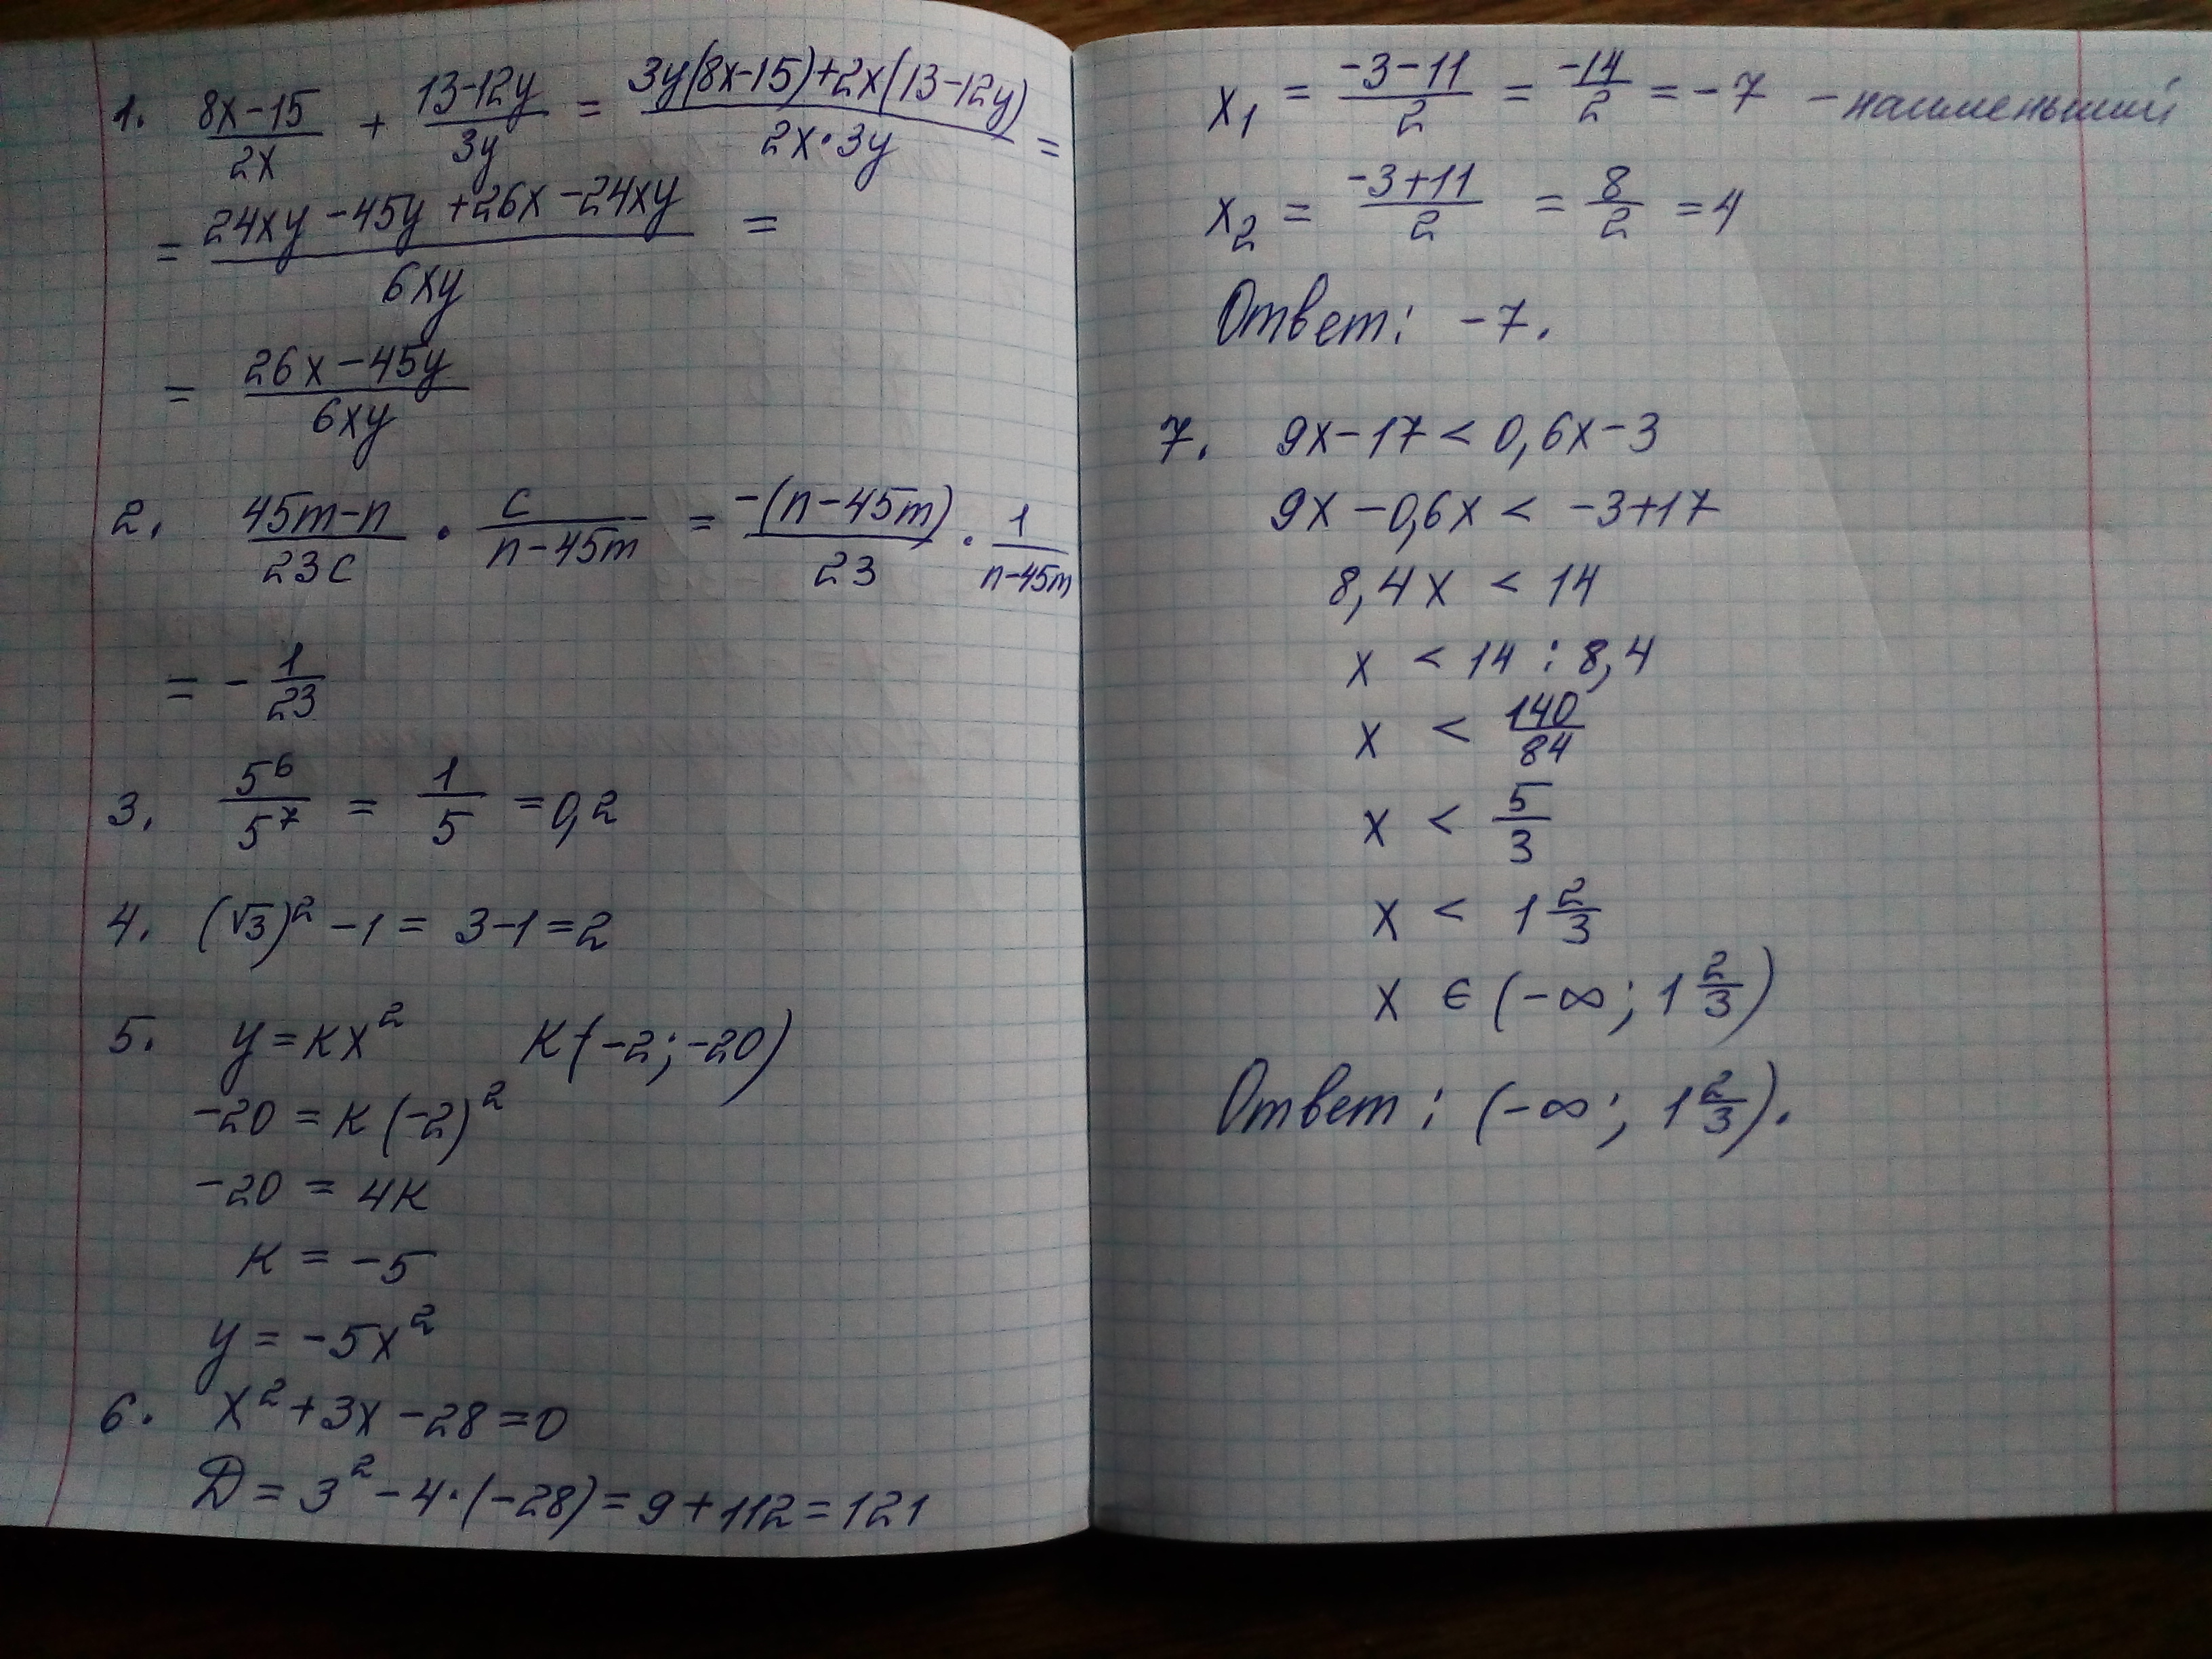 1. (8x-15)/(2x) + (13-12y)/(3y) = (3y(8x-15)+2x(13-12y))/(2x·3y) =
= (24xy-45y+26x-24xy)/(6xy) =
= (26x-45y)/(6xy)
2. (45m-n)/(23c) · c/(n-45m) = (-(n-45m))/23 · 1/(n-45m)
= - 1/23
3. 5⁶/5⁷ = 1/5 = 0,2
4. (√3)² - 1 = 3-1=2
5. y=kx² K(-2;-20)
-20 = k(-2)²
-20 = 4k
k = -5
y = -5x²
6. x²+3x-28=0
D = 3² - 4·(-28) = 9 + 112 = 121
x₁ = (-3-11)/2 = -14/2 = -7 - наименьший
x₂ = (-3+11)/2 = 8/2 = 4
Ответ: -7.
7. 9x-17 < 0,6x-3
9x-0,6x < -3+17
8,4x < 14
x < 14 : 8,4
x < 140/84
x < 5/3
x < 1 2/3
x ∈ (-∞; 1 2/3)
Ответ: (-∞; 1 2/3).